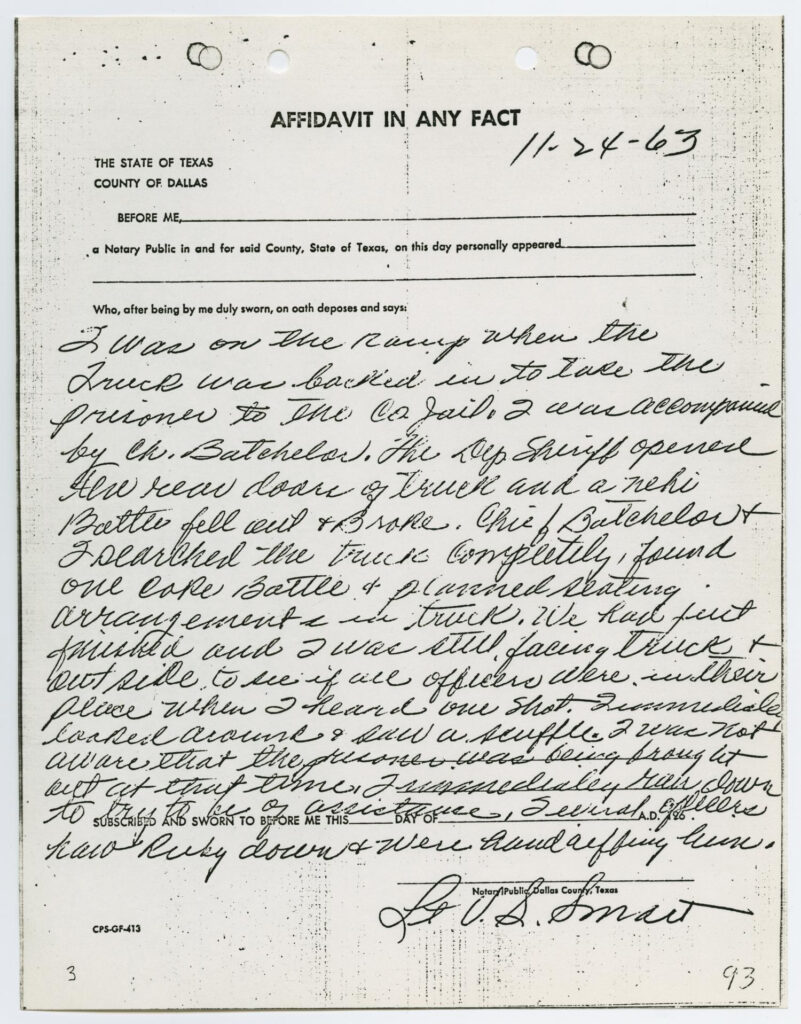 AFFIDAVIT IN ANY FACT
11-24-63
THE STATE OF TEXAS
COUNTY OF DALLAS
BEFORE ME,
a Notary Public in and for said County, State of Texas, on this day personally appeared
Who, after being by me duly sworn, on oath deposes and says:
I was on the ramp when the
Truck was backed in to take the
prisoner to the Co Jail. I was accompanied
by Ch. Batchelor. The Dep Sheriff opened
the rear doors of truck and a nehi
Bottle fell out & Broke. Chief Batchelor &
I searched the truck completely, found
one coke Bottle & planned seating
arrangements in truck. We had just
finished and I was still facing truck &
out side to see if all officers were in their
place when I heard one shot. I immediately
looked around & saw a scuffle. I was not
aware that the prisoner was being brought
out at that time. I immediatley ran down
to try to be of assistance, Several officers
SUBSCRIBED AND SWORN TO BEFORE ME THIS DAY OF A.D. 196
had Ruby down & were handcuffing him.
Notary Public, Dallas County, Texas
Lt V. S. Smart
CPS-GF-413
3
93